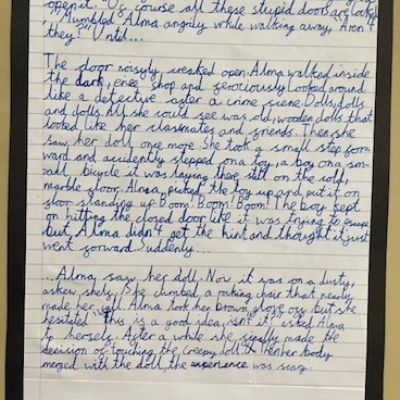 open it. "Of course all these stupid doors are locked
" Mumbled Alma angrily while walking away, Aren't
they?" Until...
The door noisyly creaked open. Alma walked inside
the dark, shop and looked around
like a detective after a crime scene. Dolls, dolls
and dolls. All she could see was old, wooden dolls that
looked like her classmates and friends. Then she
saw her doll once more. She took a small step for-
ward and accidently stepped on a toy, a boy on a sm-
all bicycle it was laying there still on the
marble floor. Alma picked the toy up and put it on
floor standing up Boom! Boom! Boom! The boy kept
on hitting the closed door like it was trying to escape
but Alma didn't get the hint and thought it just
went forward Suddenly...
...Alma saw her doll. Now it was on a dusty,
askew shelf. She climbed a rocking chair that nearly
made her fall. Alma took her brown glove off but she
hesitated "this is a good idea, isn't it" asked Alma
to herself. After a while she finally made the
decision of touching the creepy doll. Then her body
merged with the doll, the experience was scary.